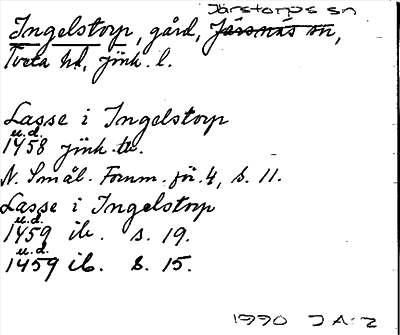 Järstorps sn
Ingelstorp, gård, Järsnäs sn,
Tveta hd, Jönk. l.
Lasse i Ingelstorp
u.d.
1458 Jönk. tb.
N. Smål. Fornm. för. 4, s. 11.
Lasse i Ingelstorp
u.d.
1459 ib. s. 19.
u.d.
1459 ib. s. 15.
1990 J A:2